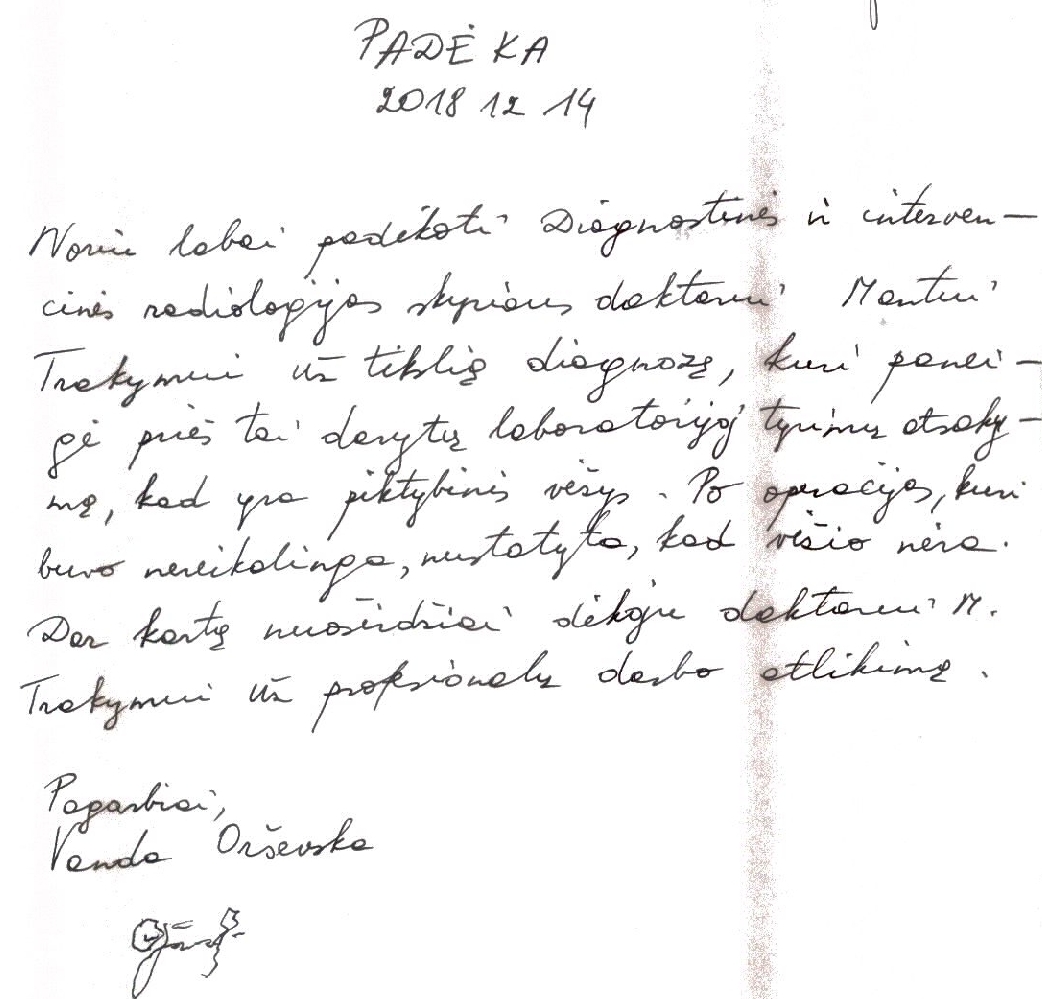 PADĖKA
2018 12 14
Noriu labai padėkoti Diagnostinės ir interven-
cinės radiologijos skyriaus daktarui Mantui
Trakymui už tikslią diagnozę, kuri panei-
gė prieš tai darytų laboratorijoj tyrimų atsaky-
mą, kad yra piktybinis vėžys. Po operacijos, kuri
buvo nereikalinga, nustatyta, kad vėžio nėra.
Dar kartą nuoširdžiai dėkoju daktarui M.
Trakymui už profesionalų darbo atlikimą.
Pagarbiai,
Vanda Orševska